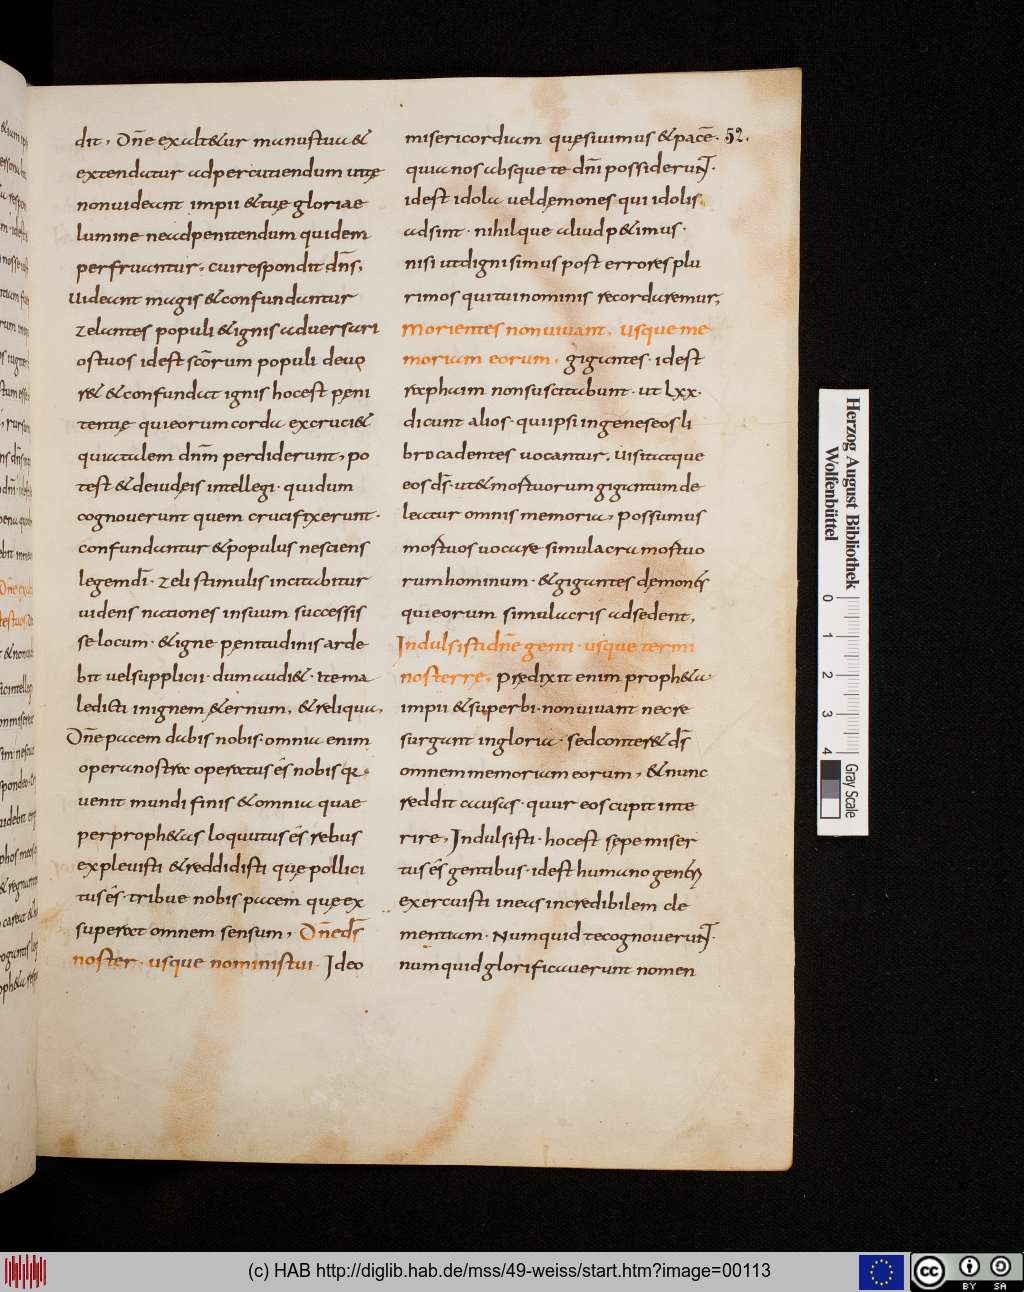 52.
dit, Dn̄e exaltetur manus tua et
extendatur ad percutiendum ut ę
non uideant impii et tuę gloriae
lumine nec ad penitendum quidem
perfruantur, cui respondit dn̄s,
Uideant magis et confundantur
zelantes populi et ignis aduersari
os tuos id est sc̄orum populi deuo
ret et confundat ignis hoc est pęni
tentię qui eorum corda excruciet
quia talem dnm̄ perdiderunt, po
test et de iudęis intellegi · qui dum
cognouerunt quem crucifixerunt ·
confundantur et populus nesciens
legem dī · zeli stimulis incitabitur
uidens nationes in suum successis
se locum · et igne pęnitudinis arde
bit uel supplicii · dum audiet · ite ma
ledicti in ignem ęternum, et reliqua,
Dn̄e pacem dabis nobis · omnia enim
opera nostra operatus és nobis q̄
uenit mundi finis et omnia quae
per prophetas loquutus és rebus
expleuisti et reddidisti quę pollici
tus és · tribue nobis pacem quę ex
superat omnem sensum, Dn̄e ds̄
noster · usque nominis tui · Ideo
misericordiam quęsiuimus et pacē ·
quia nos absque te dn̄i possiderunt ·
id est idola uel dęmones qui idolis
adsint · nihilque aliud petimus ·
nisi ut digni simus post errores plu
rimos qui tui nominis recordaremur,
Morientes non uiuant, usque me
moriam eorum, gigantes · id est
raphaim non suscitabunt · ut Lxx ·
dicunt alios · qui ipsi in geneseos li
bro cadentes uocantur, uisitatque
eos ds̄ · ut et mortuorum gigantum de
leatur omnis memoria, possumus
mortuos uocare simulacra mortuo
rum hominum · et gigantes dęmones
qui eorum simulacris adsedent,
Indulsisti dn̄e genti · usque termi
nos terrę, prędixit enim propheta
impii et superbi · non uiuant nec re
surgant in gloria · sed conteret ds̄
omnem memoriam eorum, et nunc
reddit causas · quur eos cupit inte
rire, Indulsisti · hoc est sępe miser
tus és gentibus · id est humano generi
exercuisti in eas incredibilem cle
mentiam · Numquid te cognouerunt ·
numquid glorificauerunt nomen
Herzog August Bibliothek
Wolfenbüttel
0 1 2 3 4
Gray Scale
(c) HAB http://diglib.hab.de/mss/49-weiss/start.htm?image=00113
cc BY SA